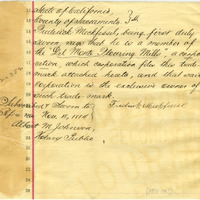 State of California,
County of Sacramento. } ss
Frederick Mackfessel, being first duly
sworn says that he is a member of
the Del Monte Flouring Mills, a corpo
ration, which corporation files this trade
mark attached hereto, and that said
corporation is the exclusive owner of
such trade mark.
Subscribed & Sworn to
before me Nov. 11,
Albert M. Johnson,
Notary Public